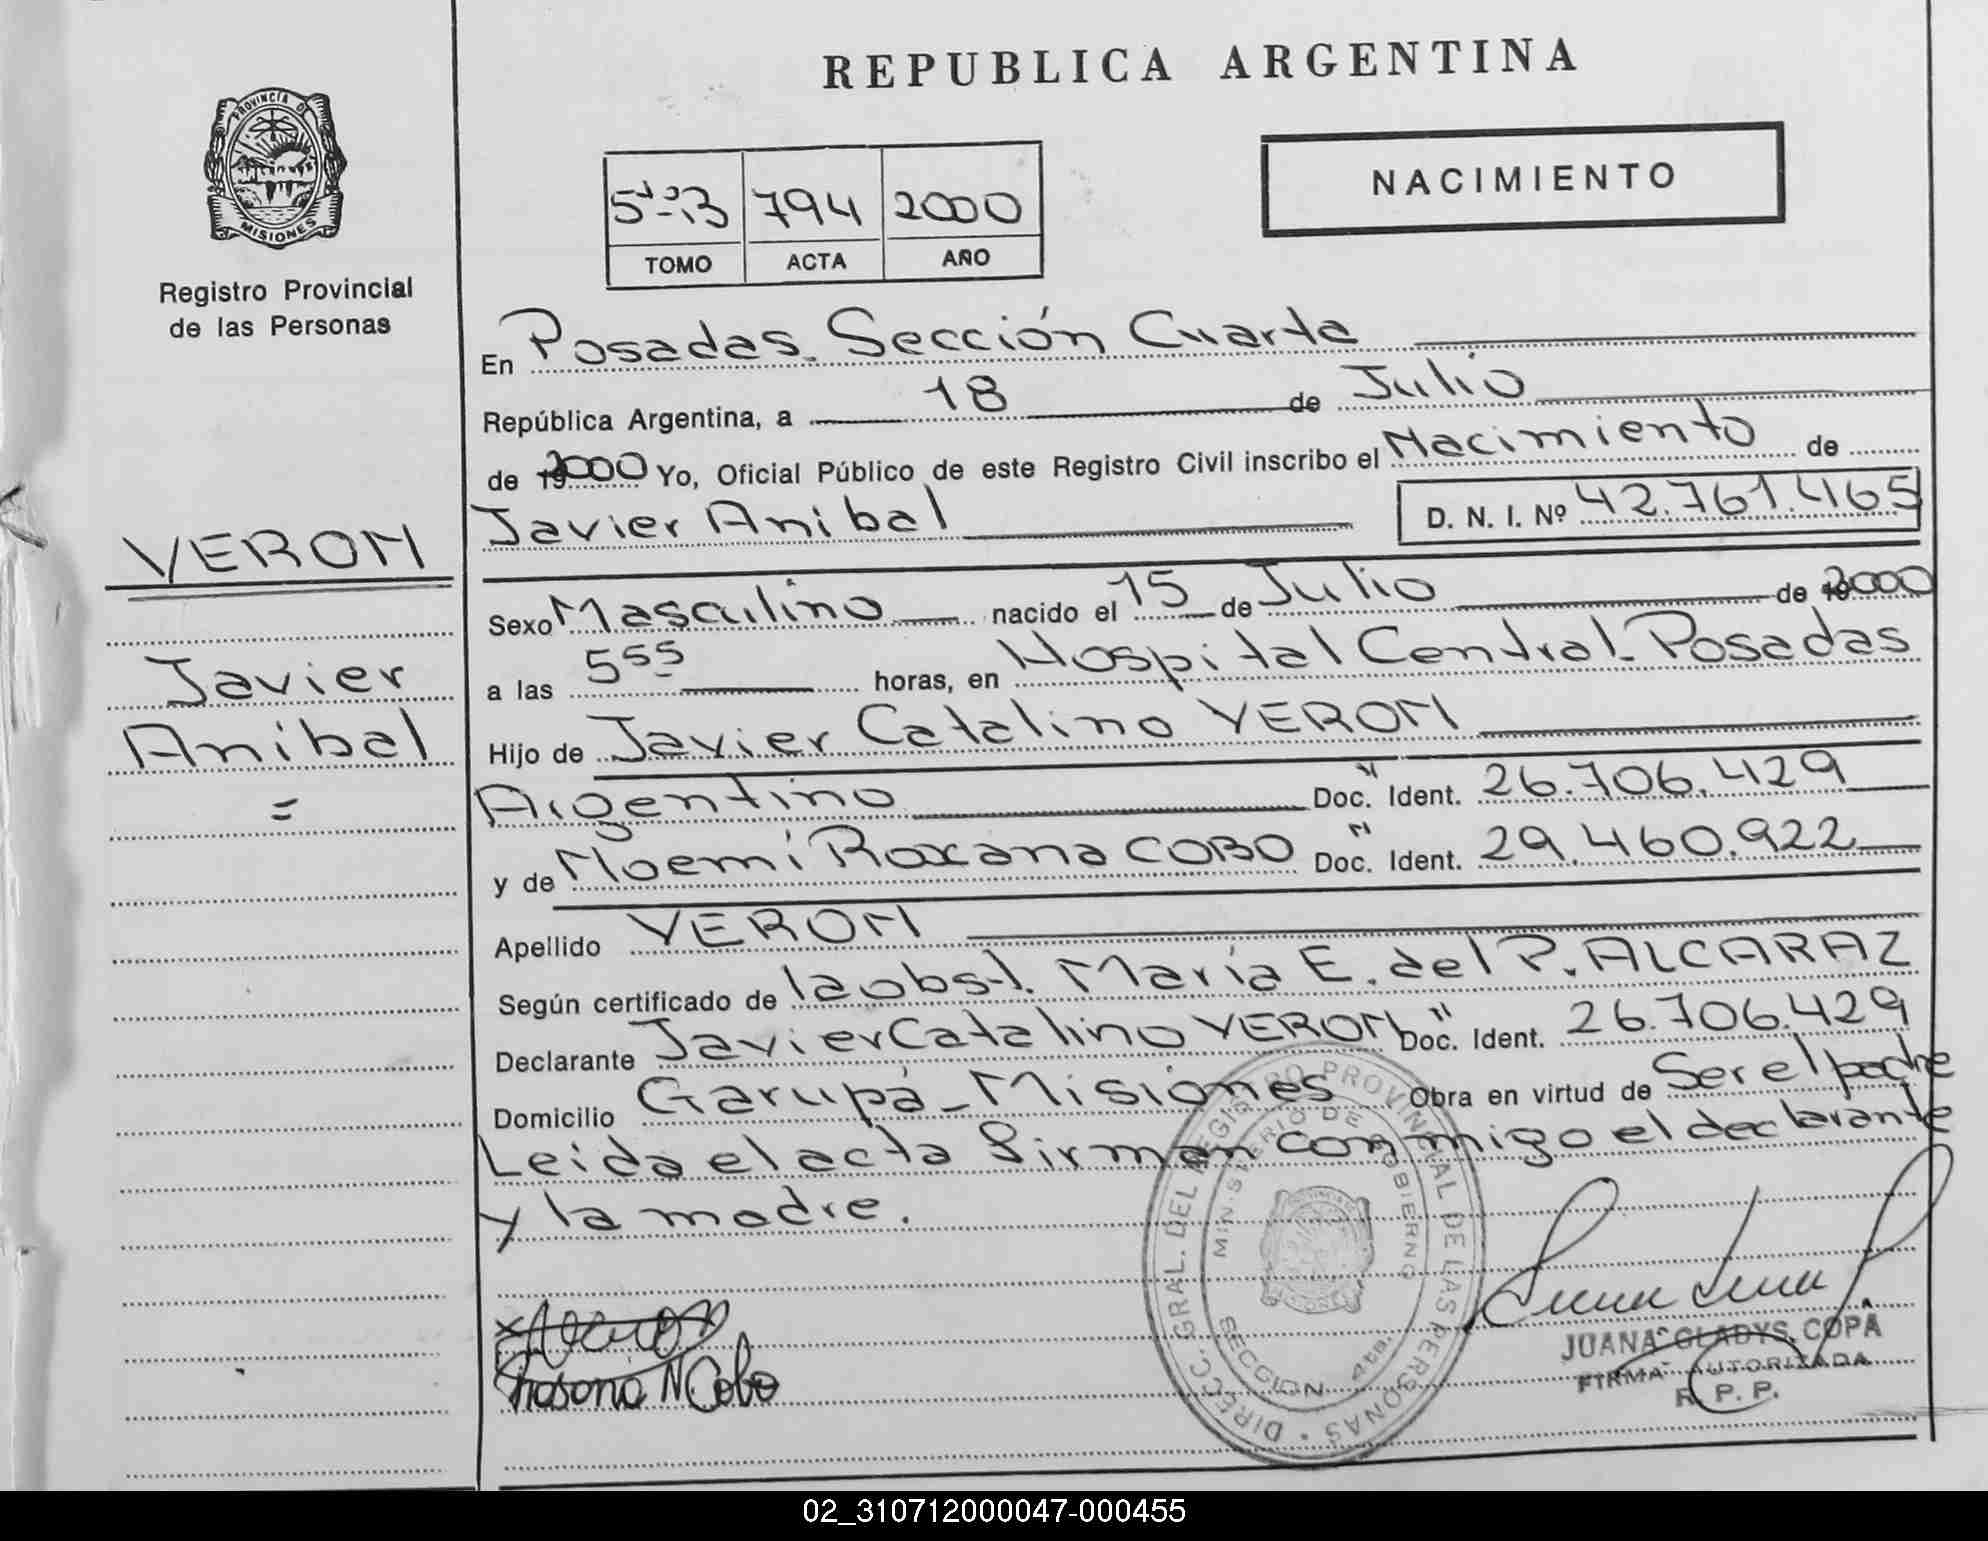 REPUBLICA ARGENTINA
PROVINCIA DE
MISIONES
Registro Provincial
de las Personas
794 2000
TOMO ACTA AÑO
NACIMIENTO
En Posadas. Sección Cuarta
República Argentina, a 18 de Julio
de 2000 Yo, Oficial Público de este Registro Civil inscribo el Nacimiento de
Javier Anibal D. N. I. Nº 42.761.465
VERON
Javier
Anibal
=
Sexo Masculino nacido el 15 de Julio de 2000
a las 5 55 horas, en Hospital Central. Posadas
Hijo de Javier Catalino VERON
Argentino Doc. Ident. 26.706.429
y de Noemi Roxana COBO Doc. Ident. 29.460.922
Apellido VERON
Según certificado de la obst. María E. del P. ALCARAZ
Declarante Javier Catalino VERON Doc. Ident. 26.706.429
Domicilio Garupá - Misiones Obra en virtud de Ser el padre
Leida el acta firman conmigo el declarante
y la madre.
N Cobo
DIRECC. GRAL. DEL REGISTRO PROVINCIAL DE LAS PERSONAS
MINISTERIO DE GOBIERNO
SECCION 4ta.
JUANA GLADYS COPA
FIRMA AUTORIZADA
R. P. P.
02_310712000047-000455